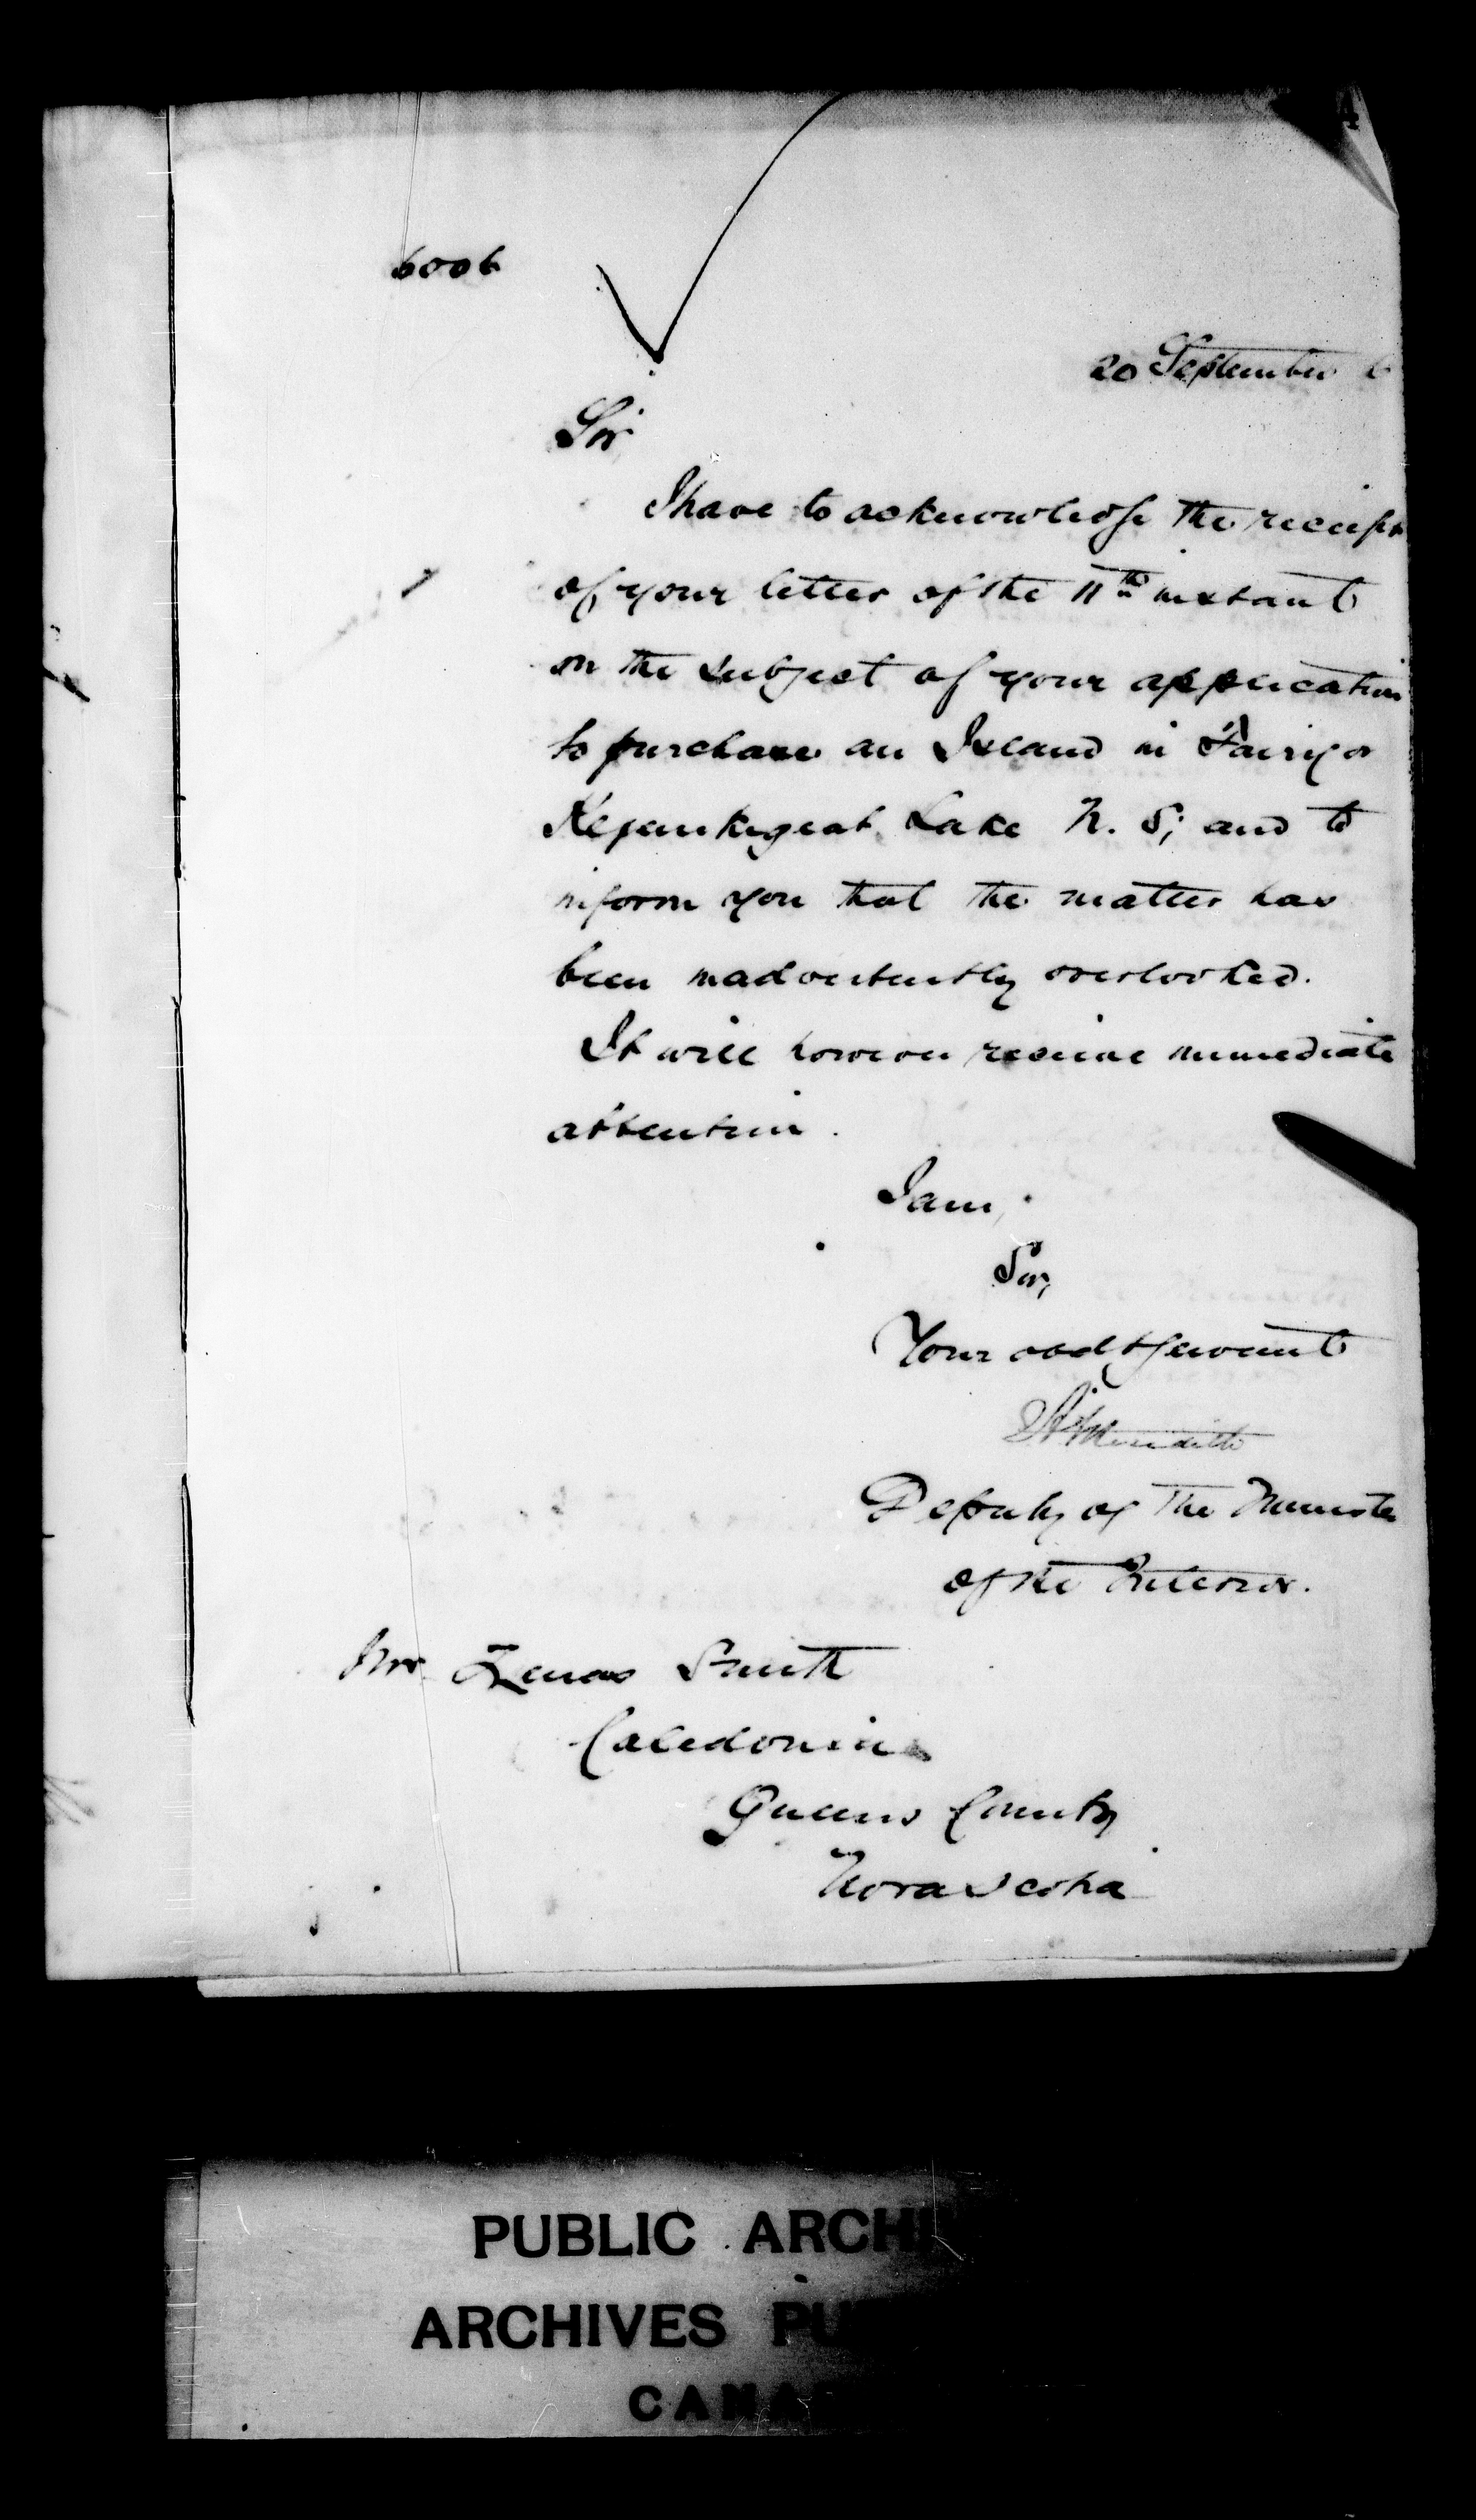 4
6006
20 September 6
Sir
I have to acknowledge the receipt
of your letter of the 11th instant
on the subject of your application
to purchase an Island in Fairy or
Kejeukigeat Lake N. S; and to
inform you that the matter has
been inadvertently overlooked.
It will however receive immediate
attention.
I am,
Sir,
Your obdt Servant
Meredith
Deputy of the Minister
of the Interior.
Mr Zenas Smith
Caledonia
Queens County
Nova Scotia
PUBLIC ARCHI
ARCHIVES PU
CANA